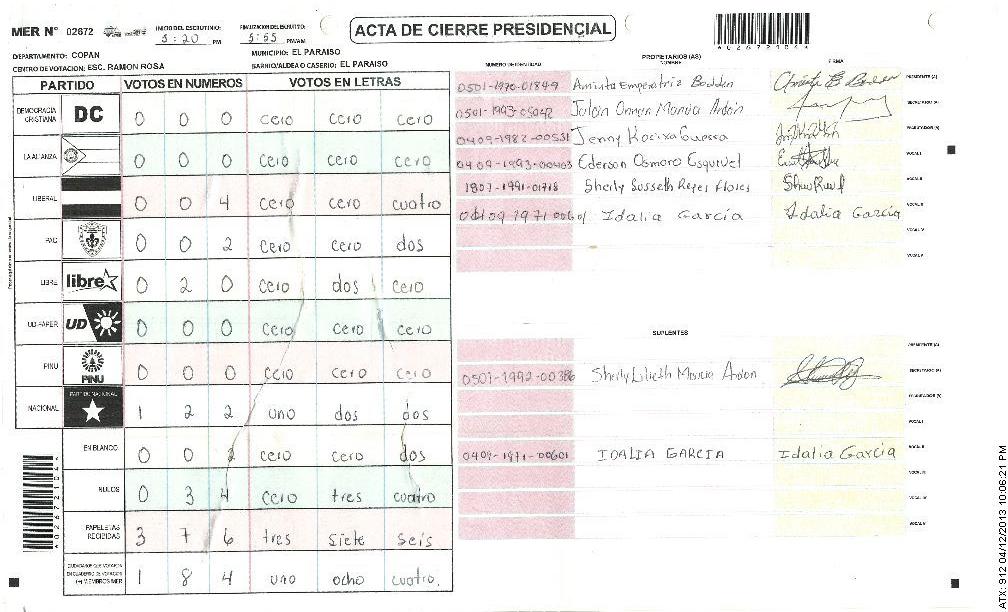 MER N° 02672
INICIO DEL ESCRUTINIO: 5:20 PM
FINALIZACION DEL ESCRUTINIO: 5:55 PM/AM
ACTA DE CIERRE PRESIDENCIAL
DEPARTAMENTO: COPAN
MUNICIPIO: EL PARAISO
CENTRO DE VOTACION: ESC. RAMON ROSA
BARRIO/ALDEA O CASERIO: EL PARAISO
PARTIDO VOTOS EN NUMEROS VOTOS EN LETRAS
DEMOCRACIA CRISTIANA DC 0 0 0 cero cero cero
LA ALIANZA 0 0 0 cero cero cero
LIBERAL 0 0 4 cero cero cuatro
PAC 0 0 2 cero cero dos
LIBRE libre 0 2 0 cero dos cero
UD-FAPER UD 0 0 0 cero cero cero
PINU PINU 0 0 0 cero cero cero
NACIONAL PARTIDO NACIONAL 1 2 2 uno dos dos
EN BLANCO 0 0 2 cero cero dos
NULOS 0 3 4 cero tres cuatro
PAPELETAS RECIBIDAS 3 7 6 tres siete seis
CIUDADANOS QUE VOTARON EN CUADERNO DE VOTACION (+) MIEMBROS MER 1 8 4 uno ocho cuatro.
NUMERO DE IDENTIDAD PROPIETARIOS (AS) NOMBRE FIRMA
0501-1970-01849 Aminta Emperatriz Bodden PRESIDENTE (A)
0501-1993-05042 SECRETARIO (A)
0409-1982-00531 Jenny ESCRUTADOR (A)
0409-1993-00403 Ederson Osmaro Esquivel VOCAL I
1807-1991-01718 Sherly Susseth Reyes Flores VOCAL II
Idalia García Idalia García VOCAL III
VOCAL IV
VOCAL V
SUPLENTES
PRESIDENTE (A)
0501-1992-00386 Sherly Lilieth SECRETARIO (A)
ESCRUTADOR (A)
VOCAL I
0409-1971-00601 IDALIA GARCIA Idalia García VOCAL II
VOCAL III
VOCAL IV
VOCAL V
ATX: 912 04/12/2013 10:06:21 PM